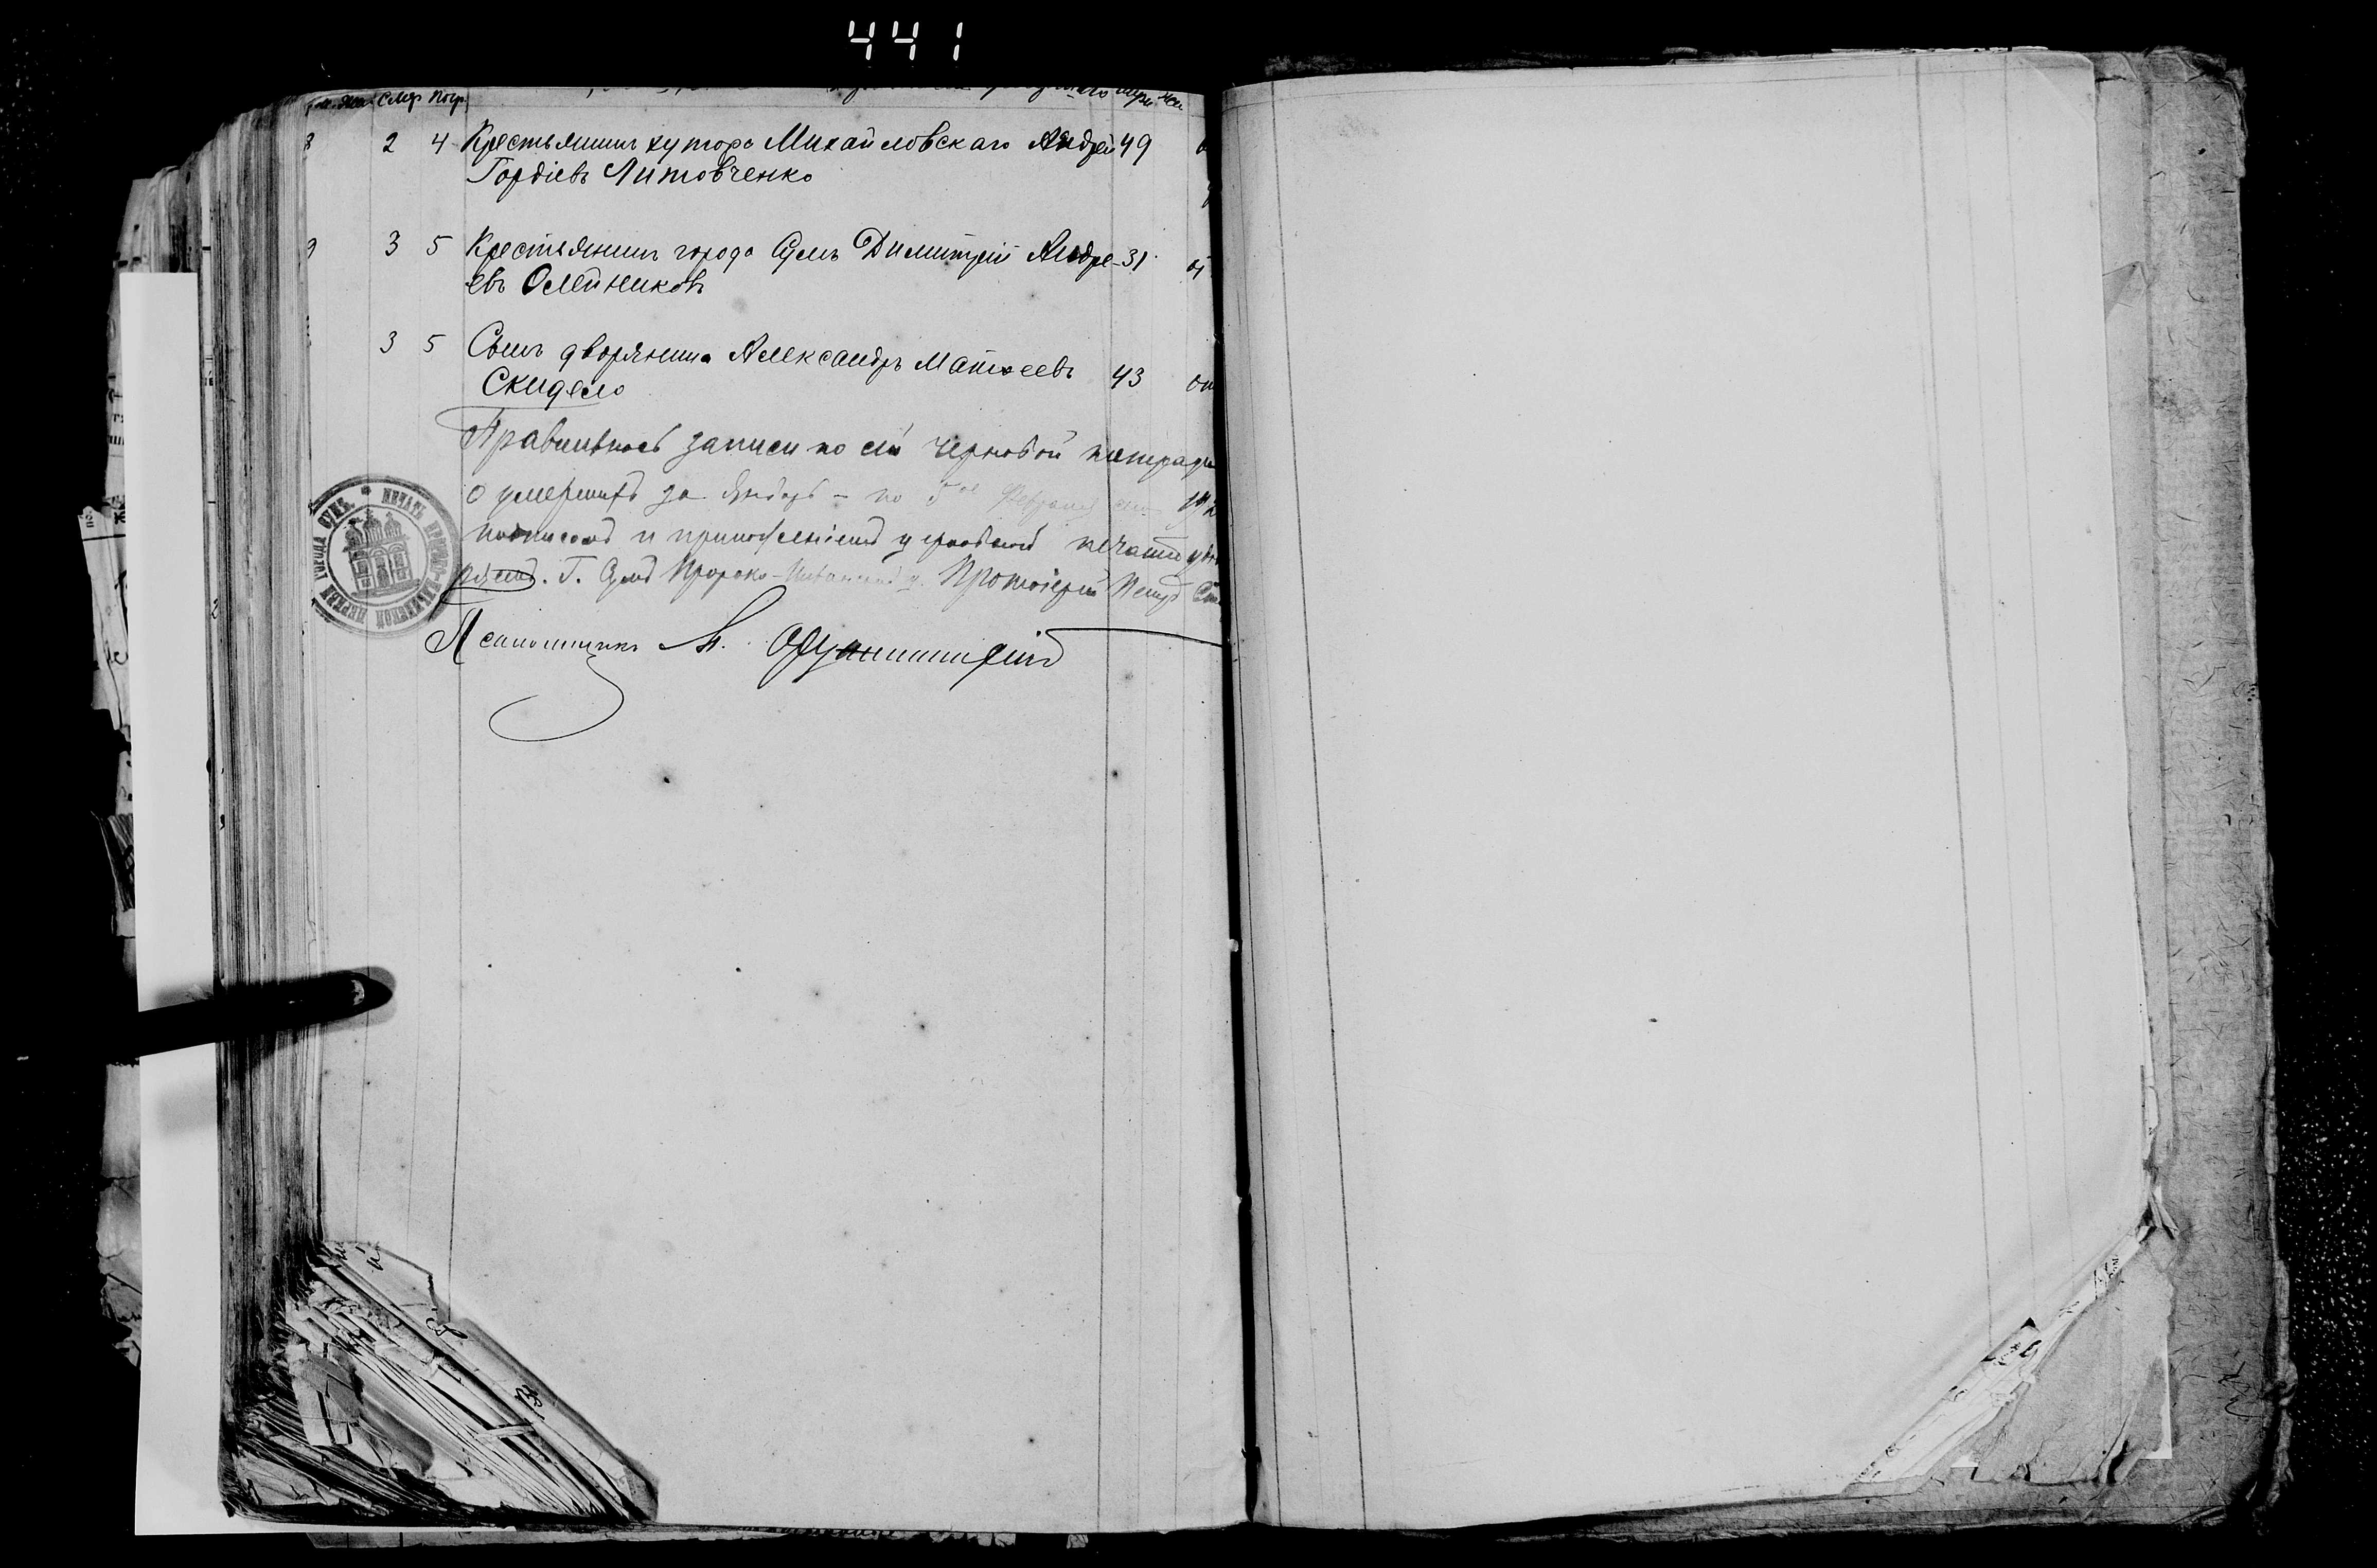 441
Жен. Смер. Погр.
8 2 4 Крестьянинъ хутора Михайловскаго Андрей 49
Гордіевъ Литовченко
9 3 5 Крестьянинъ города Сумъ Димитрій Андре- 31
евъ Олейниковъ
3 5 Сынъ дворянина Александръ Матвеевъ 43
Скидело
Правильность записи по сей черновой тетради
о умершихъ за Январь - по 5ое Февраля
подписомъ и приложеніемъ церковной печати
Г. Сумъ Пророко-Ильинской ц. Протоіерей Петръ
Псаломщикъ
ПЕЧАТЬ ПРОРОКО-ИЛЬИНСКОЙ ЦЕРКВИ ГОРОДА СУМЪ